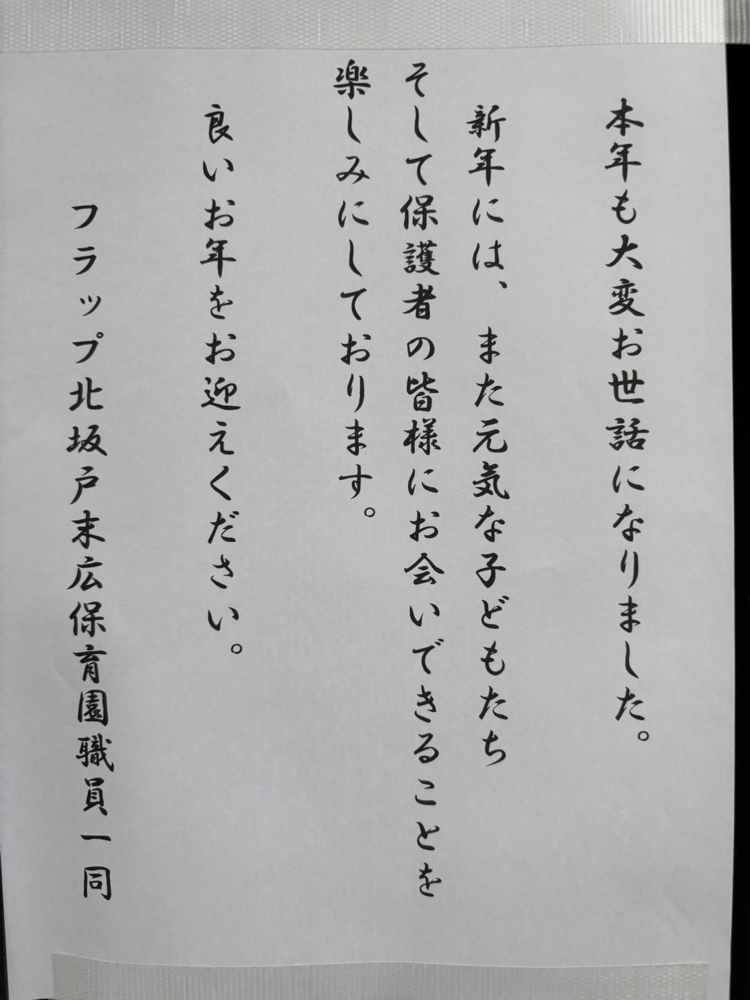 本年も大変お世話になりました。
新年には、また元気な子どもたち
そして保護者の皆様にお会いできることを
楽しみにしております。
良いお年をお迎えください。
フラップ北坂戸末広保育園職員一同